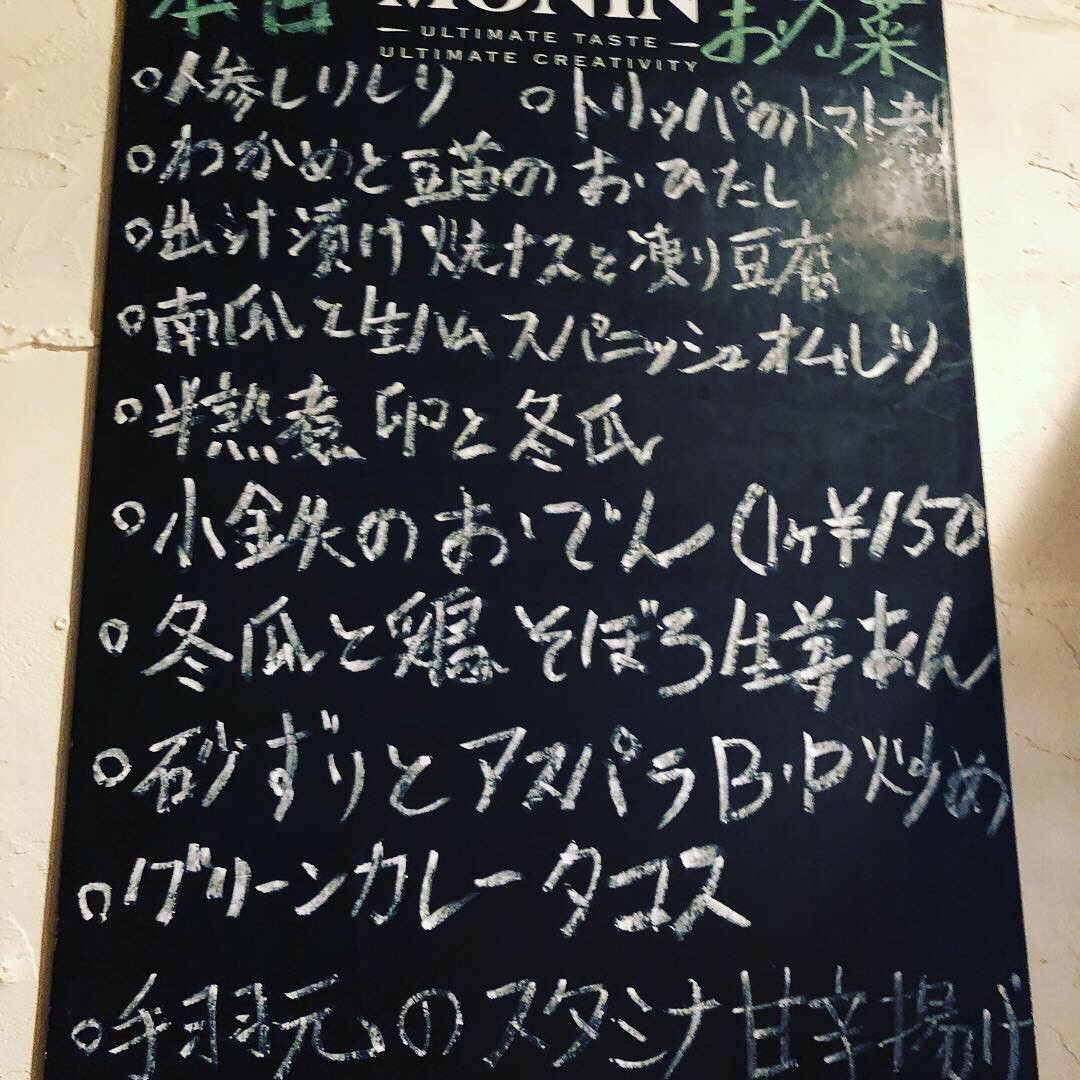 本日 MONIN お万菜
ULTIMATE TASTE
ULTIMATE CREATIVITY
○人参しりしり ○トリッパのトマト煮
○わかめと豆苗のおひたし
○出汁漬け焼ナスと凍り豆腐
○南瓜と生ハムスパニッシュオムレツ
○半熟煮卵と冬瓜
○小鉄のおでん(1ヶ¥150
○冬瓜と鶏そぼろ生姜あん
○砂ずりとアスパラB・P炒め
○グリーンカレータコス
○手羽元のスタミナ甘辛揚げ